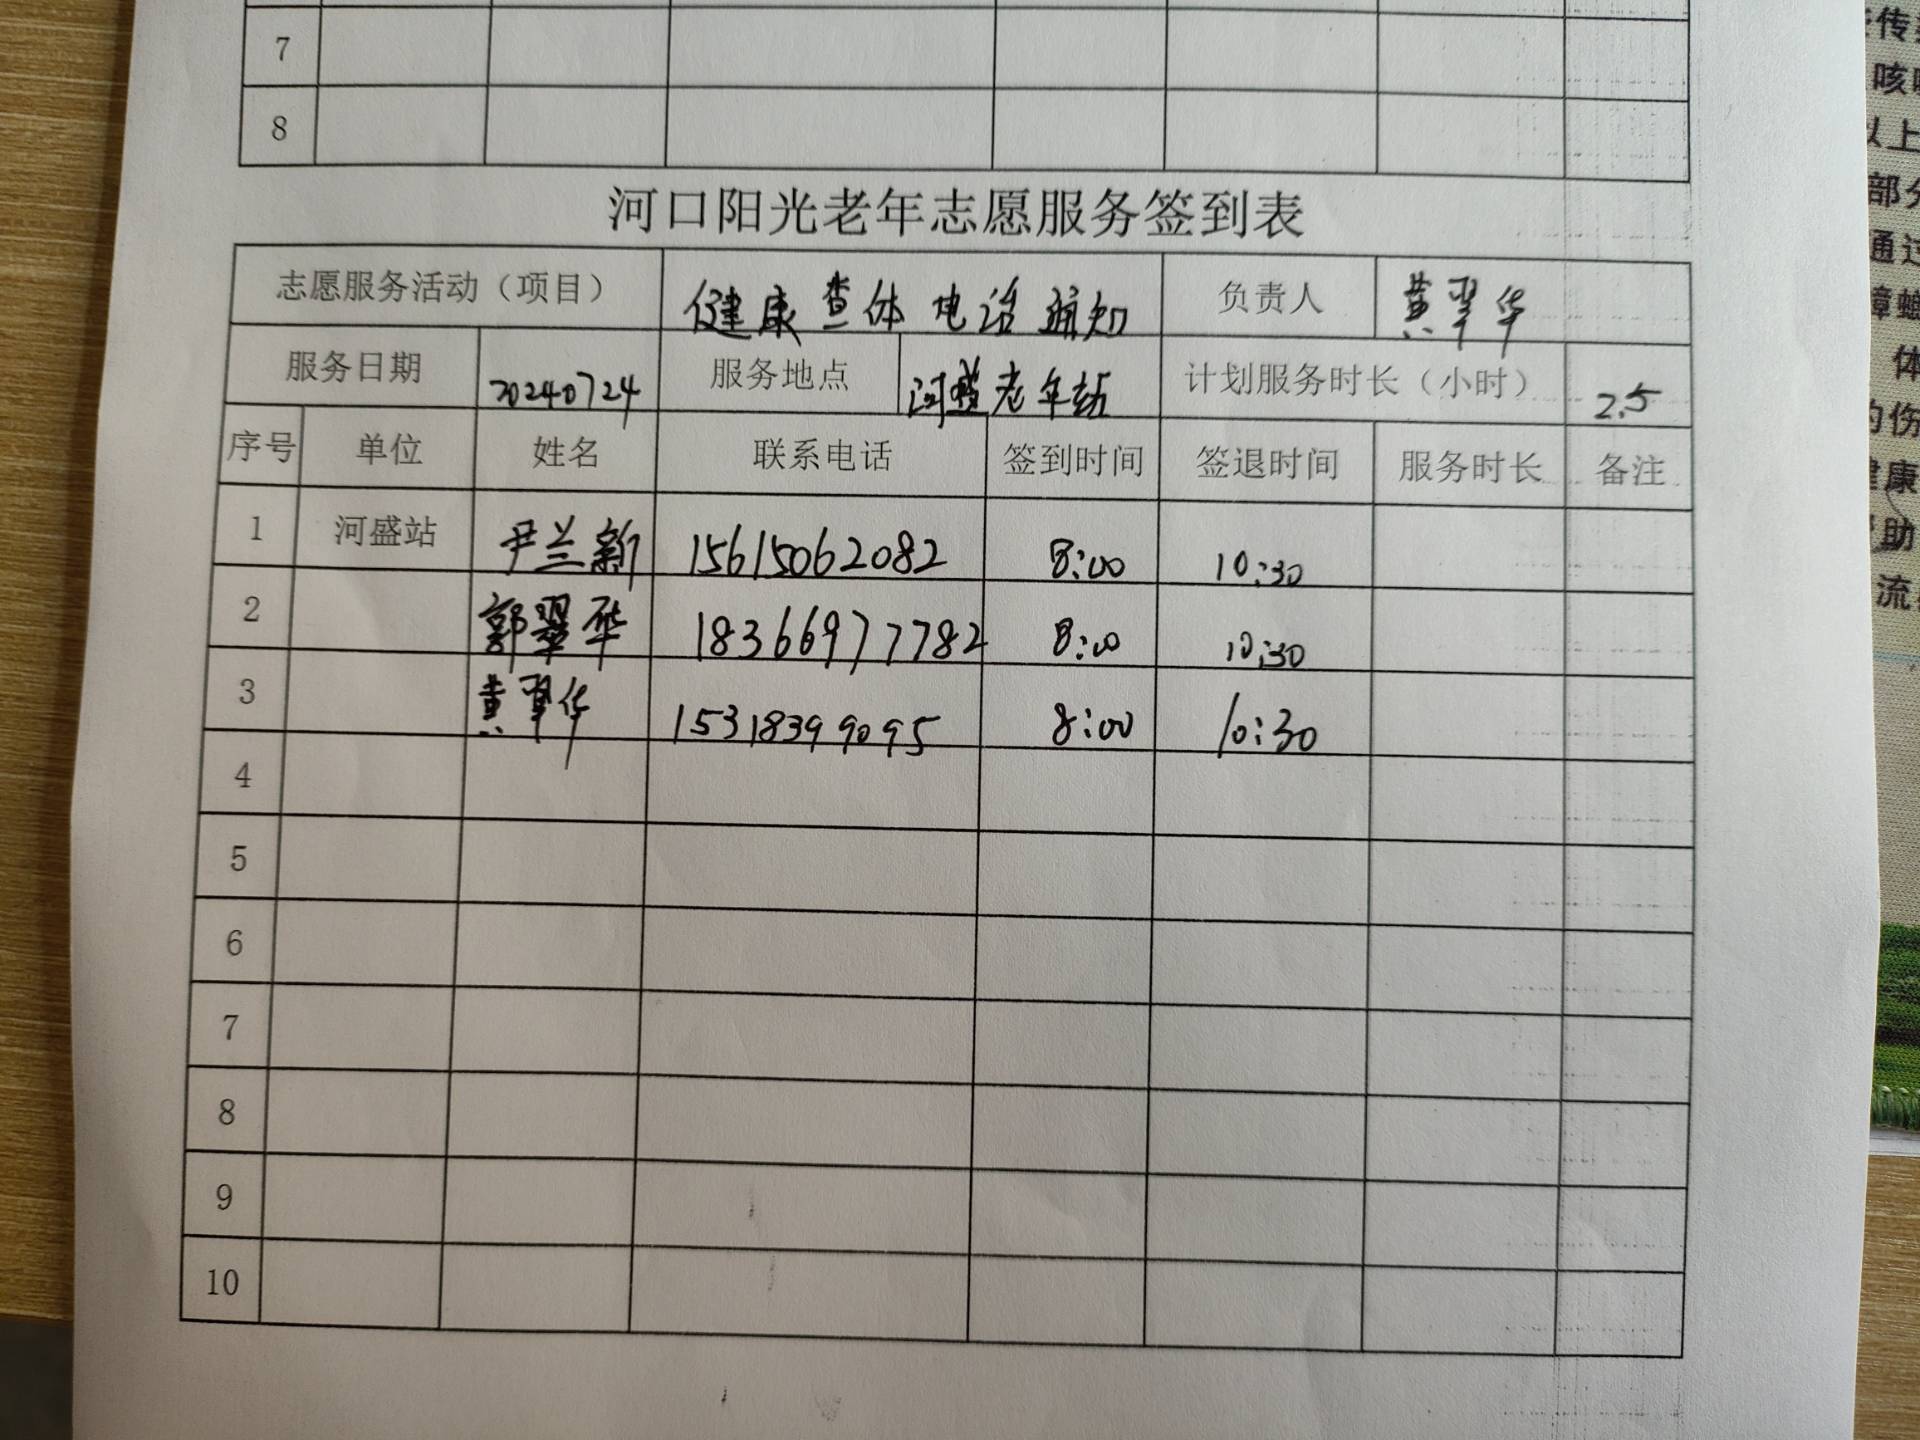 7
8
河口阳光老年志愿服务签到表
志愿服务活动（项目） 健康查体电话通知 负责人 黄翠华
服务日期 20240724 服务地点 河盛老年站 计划服务时长（小时） 2.5
序号 单位 姓名 联系电话 签到时间 签退时间 服务时长 备注
1 河盛站 尹兰新 15615062082 8:00 10:30
2 郭翠华 18366977782 8:00 10:30
3 黄翠华 15318399095 8:00 10:30
4
5
6
7
8
9
10
传
咳
以上
部分
通过
蟑
体
的伤
健康
助
流